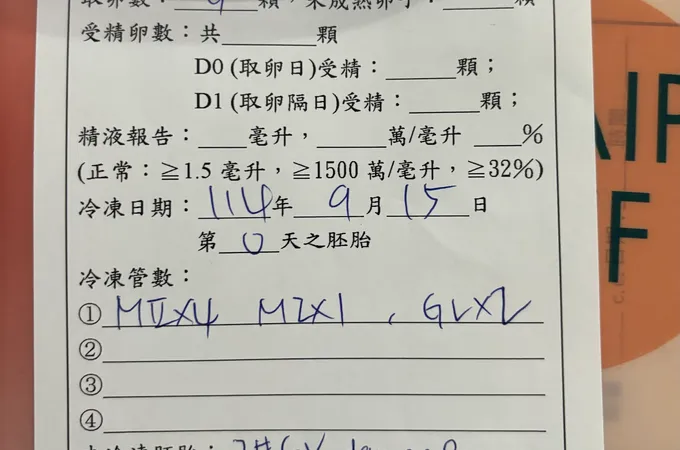 取卵數：9顆，未成熟卵子：____顆
受精卵數：共______顆
D0 (取卵日)受精：____顆；
D1 (取卵隔日)受精：____顆；
精液報告：___毫升，____萬/毫升 ___%
(正常：≧1.5 毫升，≧1500 萬/毫升，≧32%)
冷凍日期：114年 9 月 15 日
第 0 天之胚胎
冷凍管數：
① MIIX4 M2X1 , GVX2
②
③
④